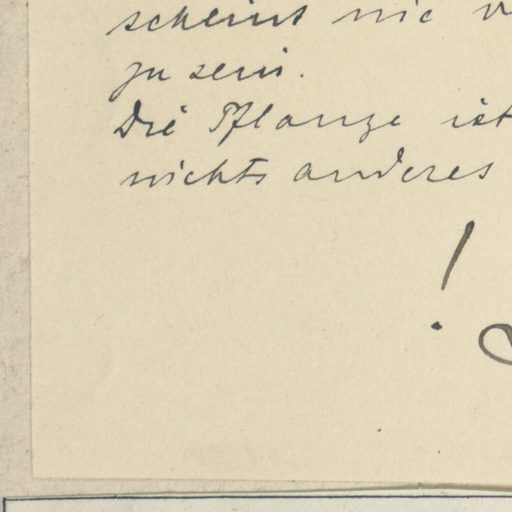 scheint nie v
zu sein.
Die Pflanze ist
nichts anderes
!